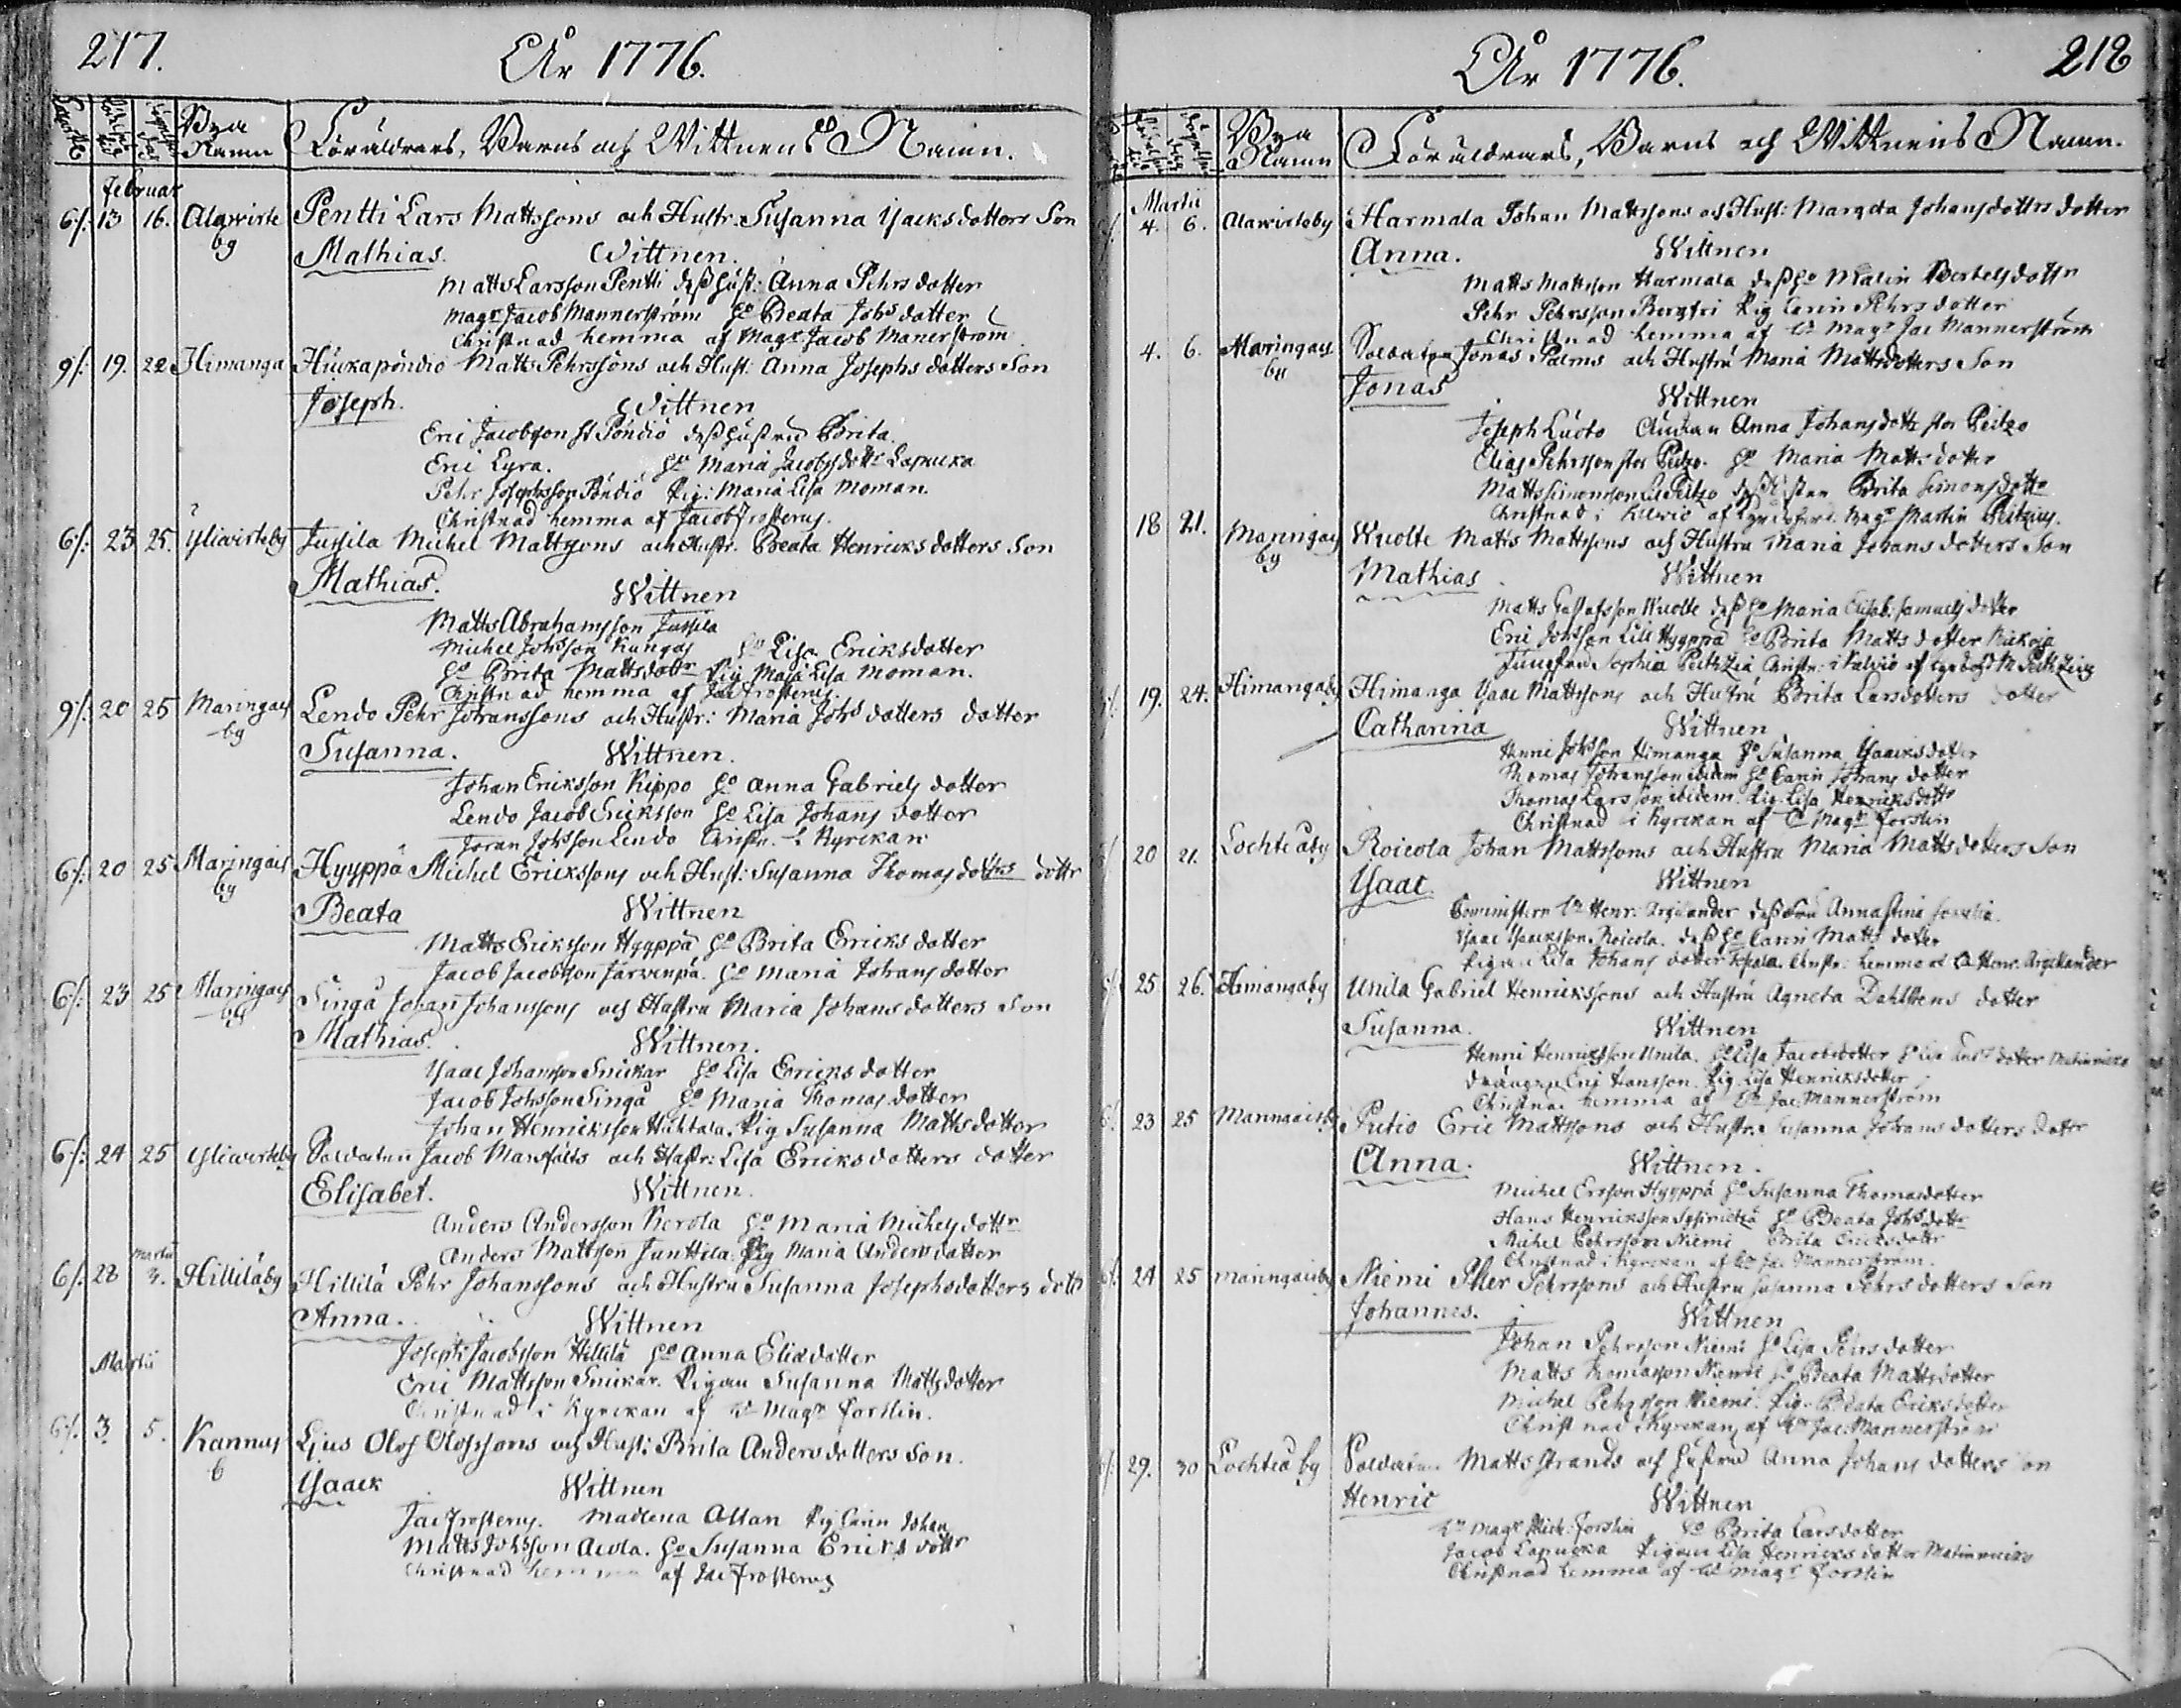 217.
År 1776.
Bya Namn
Föräldrars, Barns och Wittnens Namn.
Februar
6/: 13 16. Alawirte by Pentti Lars Mattssons och Hustr. Susanna Isacksdotters Son
Mathias. Wittnen.
Matts Larsson Pentti deß hust: Anna Pehrsdotter
Magr Jacob Mannerström Ho Beata Johsdotter
Christnad hemma af Magr Jacob Manerström
9/: 19. 22 Himanga Hiukapöndiö Matts Pehrssons och Hust: Anna Josephsdotters Son
Joseph. Wittnen
Eric Jacobsson St Pöndiö deß hustru Brita.
Eric Lyra. Ho Maria Jacobsdottr Lapucka
Pehr Josephsson Pöndiö Pig: Maria Lisa Moman.
Christnad hemma af Jacob Frosterus.
6/: 23 25. Yliwirteby Jussila Michel Mattsons och Hustr. Beata Henricksdotters Son
Mathias. Wittnen
Matts Abrahamsson Jussila
Michel Johsson Kangas Ho Lisa Ericksdotter
Ho Brita Mattsdottr Pig Maja Lisa Moman.
Christnad hemma af Jac Frosterus.
9/: 20 25 Maringais by Lendo Pehr Johanssons och Hustr: Maria Johsdotters dotter
Susanna. Wittnen.
Johan Eriksson Kippo Ho Anna Gabriels dotter
Lendo Jacob Ericksson Ho Lisa Johans dotter
Joran Johsson Lendo Christn. i Kyrckan
6/: 20 25 Maringais by Hyyppä Michel Ericksons och Hust: Susanna Thomasdotters dottr
Beata Wittnen
Matts Ericksson Hyyppä Ho Brita Ericksdotter
Jacob Jacobsson Järvenpä. Ho Maria Johans dotter
6/: 23 25 Maringais by Singa Johan Johanssons och Hustru Maria Johansdotters Son
Mathias. Wittnen.
Isaac Johansson Snickar Ho Lisa Ericksdotter
Jacob Johsson Singa Ho Maria Thomasdotter
Johan Henricksson Huhtala. Pig Susanna Mattsdotter
6/: 24 25 Yliwirteby Soldaten Jacob Manfalts och Hustr: Lisa Ericksdotters dotter
Elisabet. Wittnen.
Anders Andersson Kerola Ho Maria Michels dottr
Anders Mattson Junttila. Pig Maria Anders dotter
6/: 28 Martii 3. Hillilä by Hillilä Pehr Johanssons och Hustru Susanna Josephsdotters dottr
Anna. Wittnen
Joseph Jacobsson Hillilä Ho Anna Eliædotter
Eric Mattsson Snickar. Pigan Susanna Mattsdotter
Christnad i Kyrckan af Hr Magr Forslin.
Martii
6/: 3. 5. Kannus b Ljus Olof Olofssons och Hust: Brita Andersdotters Son.
Isaack Wittnen
Jac Frosterus. Madlena Altan Pig Carin Johan
Matts Johsson Aiola. Ho Susanna Ericks dottr
Christnad hemma af Jac Frosterus
År 1776.
218
Bya Namn
Föräldrars, Barns och Wittnens Namn.
Martii
4. 6. Alawirteby Harmala Johan Mattssons och Hust: Margeta Johansdotters dotter
Anna. Wittnen
Matts Mattsson Harmala deß Ho Malin Bertelsdottr
Pehr Pehrsson Pig Carin Pehrsdotter
Christnad hemma af Hr Magr Jac Mannerström
4. 6. Maringais by Soldaten Jonas Palms och Hustru Maria Mattsdotters Son
Jonas Wittnen
Joseph Luoto Änkan Anna Johansdottr stor Peitzo
Elias Pehrsson stor Peitzo. Ho Maria Mattsdotter
Matts Simonsson Lill Peitzo deß Hustru Brita Simonsdottr
Christnad i Kelviö af Magr Martin Peitzius.
18 21. Maringais by Wuolte Matts Mattssons och Hustru Maria Johansdotters Son
Mathias Wittnen
Matts Gustafsson Wuolte deß Ho Maria Elisab: Samuelsdotter
Eric Johsson Lill Hyyppä Ho Brita Mattsdotter
Jungfru Sophia Peitzia Christn. i Kelviö af
19. 24. Himangaby Himanga Isaac Mattssons och Hustru Brita Larsdotters dotter
Catharina Wittnen
Henric Johsson Himanga Ho Susanna Isaacksdotter
Thomas Johansson ibidem Ho Carin Johans dotter
Thomas Larsson ibidem. Pig. Lisa Henricksdottr
Christnad i Kyrckan af Hr Magr Forslin
20 21. Lochteå by Roicola Johan Mattssons och Hustru Maria Mattsdotters Son
Isaac Wittnen
Comministern Hr Henr: Argilander deß Fru Anna Stina
Isaac Isaacksson Roicola. deß Ho Carin Matts dotter
Pigan Lisa Johans dotter Christn: hemma af Hr Henr. Argillander
25 26. Himangaby Unila Gabriel Henrickssons och Hustru Agneta Dahlstens dotter
Susanna. Wittnen
Henric Henricksson Unila. Ho Lisa Jacobsdotter
Drängen Eric Hansson. Pig Lisa Henricksdotter
Christnad hemma af Hr Jac. Mannerström
23 25 Maringaisby Putio Eric Mattssons och Hustr. Susanna Johansdotters dottr
Anna. Wittnen.
Michel Ersson Hyyppä Ho Susanna Thomasdotter
Hans Henricksson Ho Beata Johsdottr
Michel Pehrsson Niemi Brita Ericksdottr
Christnad i Kyrckan af Hr Jac Mannerström.
24 25 Maringaisby Niemi Petter Pehrssons och Hustru Susanna Pehrsdotters Son
Johannes. Wittnen
Johan Pehrsson Niemi Ho Lisa Pehrsdotter
Matts Thomasson Niemi Ho Beata Mattsdotter
Michel Pehrsson Niemi. Pig. Beata Ericksdotter
Christnad i Kyrckan af Hr Jac. Mannerström
29. 30 Lochteå by Soldaten Matts Strands och hustru Anna Johansdotters Son
Henric Wittnen
Hr Magr Mich. Forslin Ho Brita Larsdotter
Jacob Lapucka Pigan Lisa Henricksdotter
Christnad hemma af Hr Magr Forslin